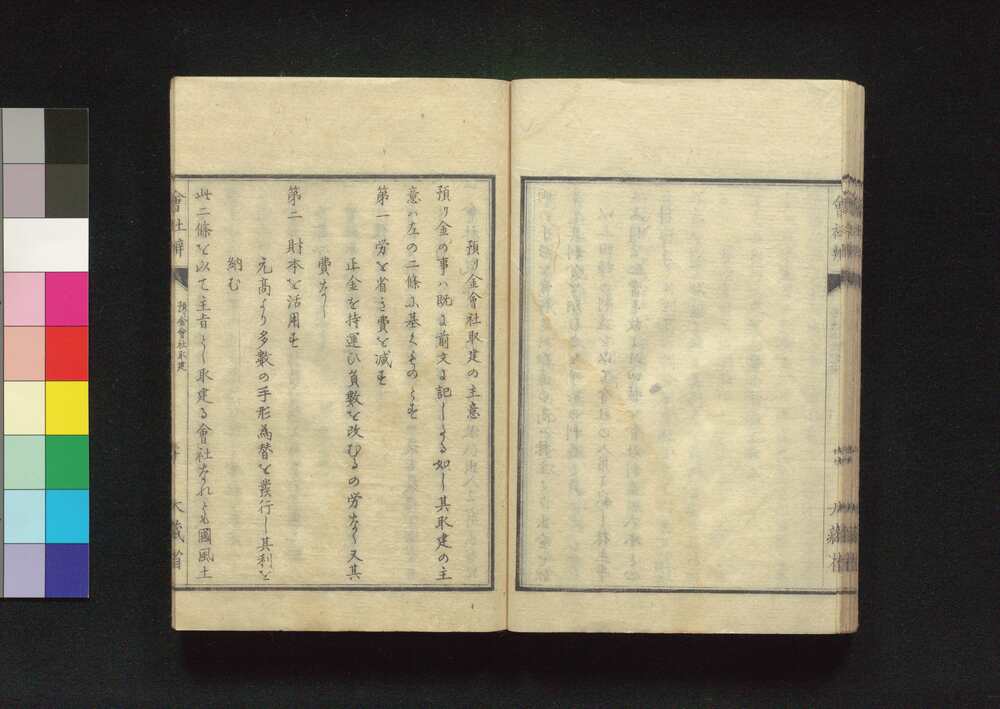 預り金會社取建の主意
預り金の事ハ既に前文に記しゝる如し其取建の主
意ハ左の二條に基くものとす
第一 労を省き費を減す
正金を持運ひ負數を改むるの労なく又其
費なし
第二 財本を活用す
元高より多數の手形為替を發行し其利を
納む
此二條を以て主旨とし取建る會社なれとも國風土
會社辨
預金會社取建
大藏省